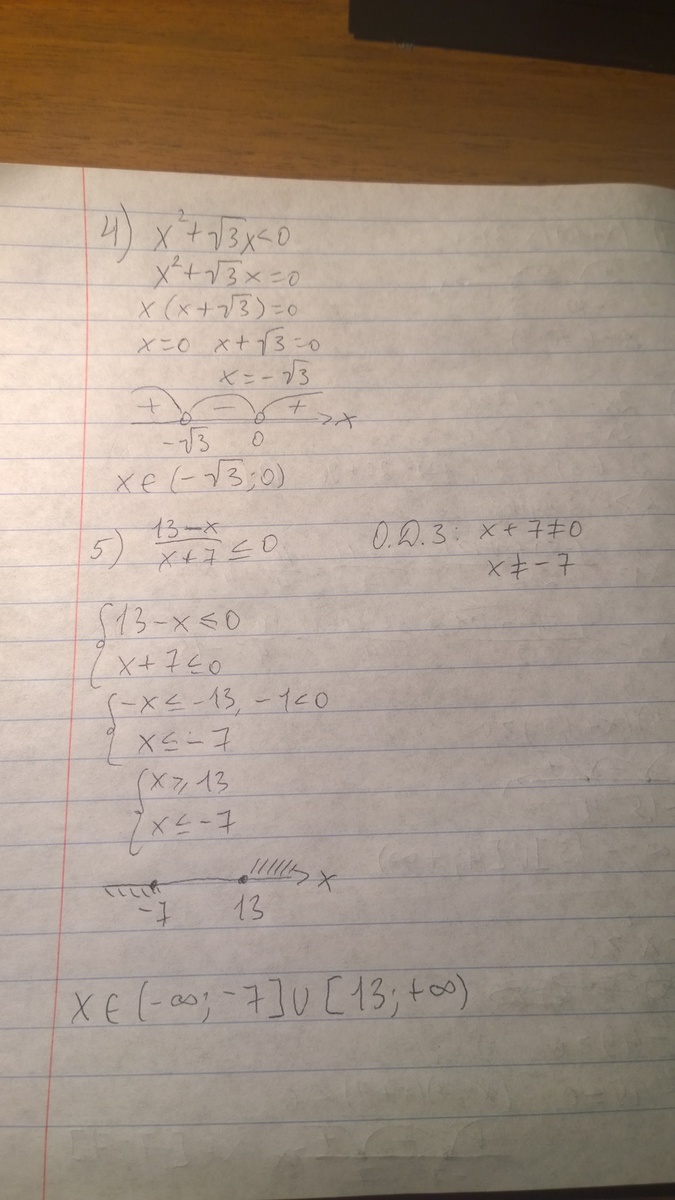 4) x²+√3x<0
x²+√3x=0
x(x+√3)=0
x=0 x+√3=0
x=-√3
+ - + x
-√3 0
x∈(-√3;0)
5) (13-x)/(x+7)≤0 О.Д.З: x+7≠0
x≠-7
{13-x≤0
x+7≤0
{-x≤-13, -1<0
x≤-7
{x⩾13
x≤-7
x
-7 13
x∈(-∞;-7]∪[13;+∞)